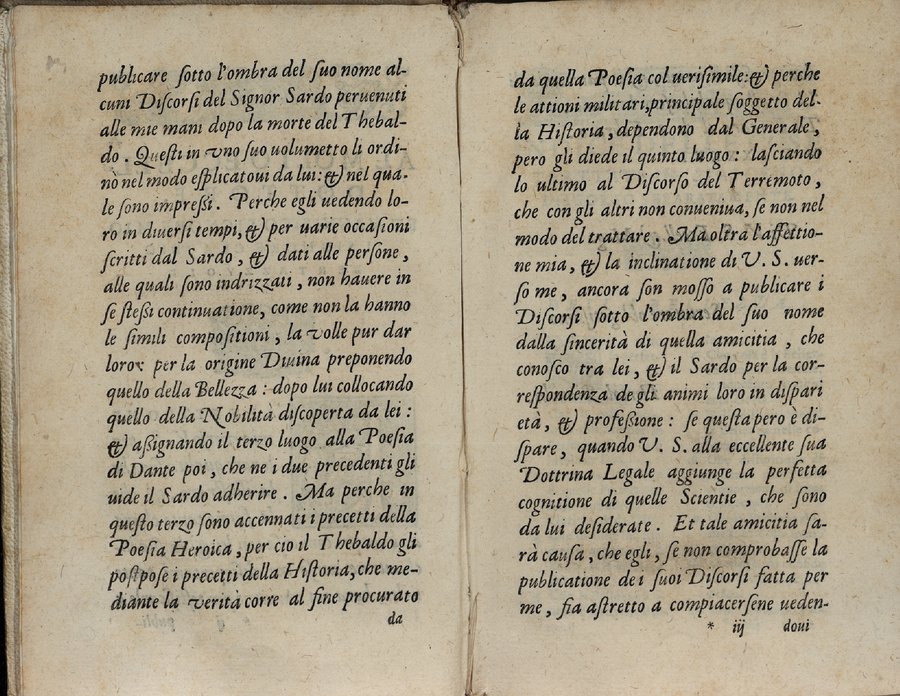 publicare sotto l'ombra del suo nome al-
cuni Discorsi del Signor Sardo peruenuti
alle mie mani dopo la morte del Thebal-
do. Questi in vno suo uolumetto li ordi-
nò nel modo esplicatoui da lui: & nel qua-
le sono impressi. Perche egli uedendo lo-
ro in diuersi tempi, & per uarie occasioni
scritti dal Sardo, & dati alle persone,
alle quali sono indrizzati, non hauere in
se stessi continuatione, come non la hanno
le simili compositioni, la volle pur dar
loro: per la origine Diuina preponendo
quello della Bellezza: dopo lui collocando
quello della Nobilità discoperta da lei:
& assignando il terzo luogo alla Poesia
di Dante poi, che ne i due precedenti gli
uide il Sardo adherire. Ma perche in
questo terzo sono accennati i precetti della
Poesia Heroica, per cio il Thebaldo gli
postpose i precetti della Historia, che me-
diante la verità corre al fine procurato
da
da quella Poesia col uerisimile: & perche
le attioni militari, principale soggetto del-
la Historia, dependono dal Generale,
pero gli diede il quinto luogo: lasciando
lo ultimo al Discorso del Terremoto,
che con gli altri non conueniua, se non nel
modo del trattare. Ma oltra l'affettio-
ne mia, & la inclinatione di V. S. uer-
so me, ancora son mosso a publicare i
Discorsi sotto l'ombra del suo nome
dalla sincerità di quella amicitia, che
conosco tra lei, & il Sardo per la cor-
respondenza de gli animi loro in dispari
età, & professione: se questa pero è di-
spare, quando V. S. alla eccellente sua
Dottrina Legale aggiunge la perfetta
cognitione di quelle Scientie, che sono
da lui desiderate. Et tale amicitia sa-
rà causa, che egli, se non comprobasse la
publicatione de i suoi Discorsi fatta per
me, sia astretto a compiacersene ueden-
* iij doui